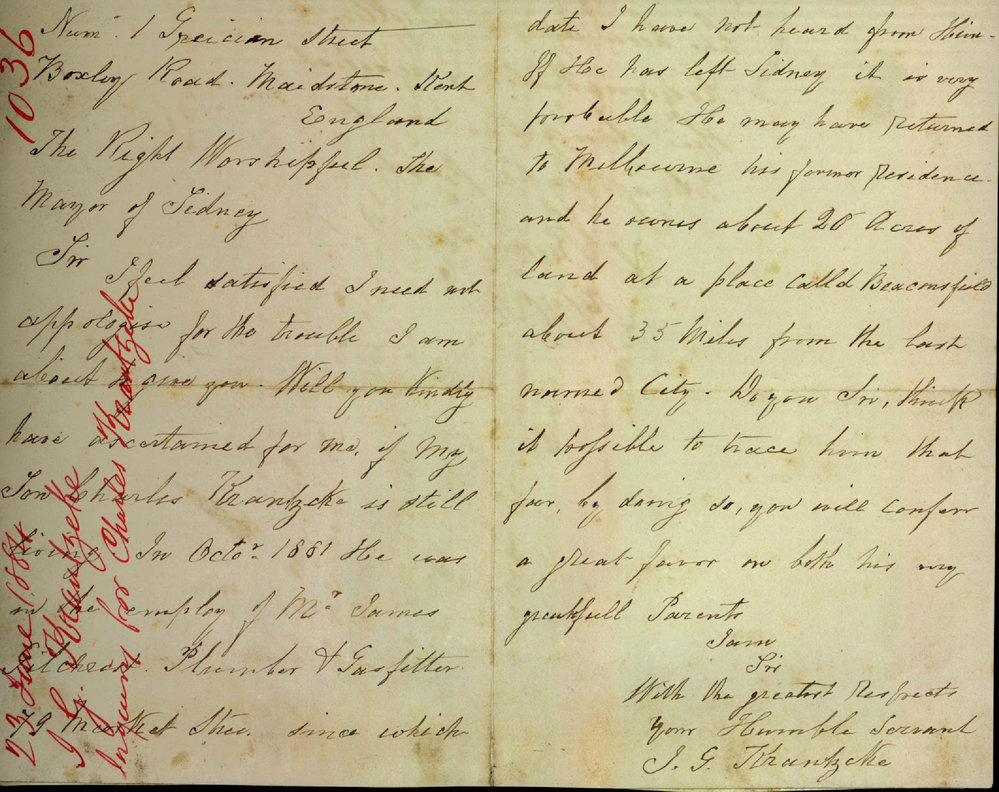 Num. 1 Grecian Street
Boxley Road. Maidstone. Kent
England
The Right Worshipfful. The
Mayor of Sidney
Sir
I feel satisfied I need not
appologise for the trouble I am
about to give you. Will you Kindly
have ascertained for me, if my
Son Charles Krantzcke is still
living. In Octor. 1881 He was
in the employ of Mr James
Gilchrist. Plumber & Gasfitter.
79 Market Stre. since which
date I have not heard from Him.
If He has left Sidney it is very
probable He may have returned
to Melbourne his former residence.
and he ownes about 20 Acres of
land at a place calld Beaconsfield
about 35 Miles from the last
named City. Do you Sir, think
it possible to trace him that
far, by doing so, you will conferr
a great favor on both his very
greatfull Parents
I am
Sir
With the greatest Respects
your Humble Servant
J. G. Krantzcke
1036
23 June 1884
J. G. Krantzcke
Inquiring for Charles Krantzcke